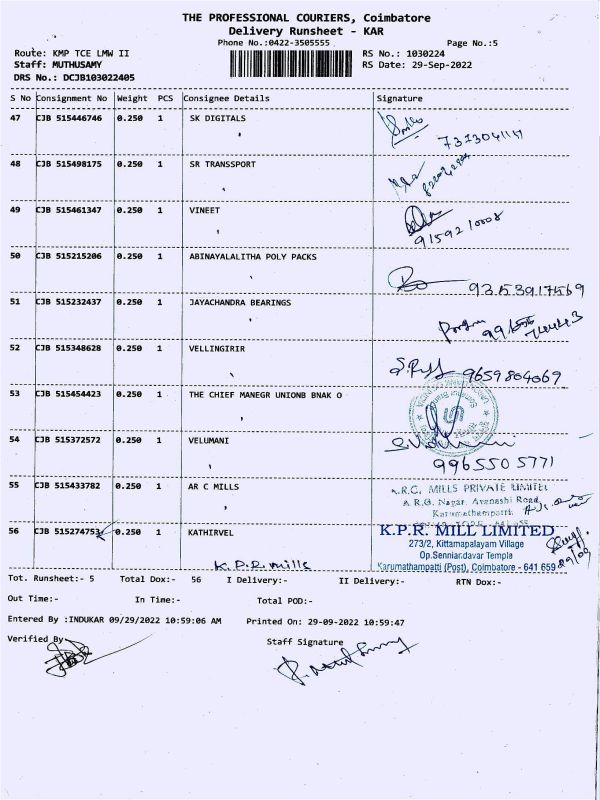 THE PROFESSIONAL COURIERS, Coimbatore
Delivery Runsheet - KAR
Phone No.:0422-3505555 Page No.:5
Route: KMP TCE LMW II RS No.: 1030224
Staff: MUTHUSAMY RS Date: 29-Sep-2022
DRS No.: DCJB103022405
S No Consignment No Weight PCS Consignee Details Signature
47 CJB 515446746 0.250 1 SK DIGITALS
48 CJB 515498175 0.250 1 SR TRANSSPORT
49 CJB 515461347 0.250 1 VINEET
9159210008
50 CJB 515215206 0.250 1 ABINAYALALITHA POLY PACKS
51 CJB 515232437 0.250 1 JAYACHANDRA BEARINGS
52 CJB 515348628 0.250 1 VELLINGIRIR
9659804069
53 CJB 515454423 0.250 1 THE CHIEF MANEGR UNIONB BNAK O
54 CJB 515372572 0.250 1 VELUMANI
9965505771
55 CJB 515433782 0.250 1 AR C MILLS
A.R.C. MILLS PRIVATE LIMITED
A.R.G. Nagar, Avanashi Road
Karumathampatti
56 CJB 515274753 0.250 1 KATHIRVEL
K.P.R mills
K.P.R. MILL LIMITED
273/2, Kittamapalayam Village
Op.Senniardavar Temple
Karumathampatti (Post), Coimbatore - 641 659
Tot. Runsheet:- 5 Total Dox:- 56 I Delivery:- II Delivery:- RTN Dox:-
Out Time:- In Time:- Total POD:-
Entered By :INDUKAR 09/29/2022 10:59:06 AM Printed On: 29-09-2022 10:59:47
Verified By Staff Signature